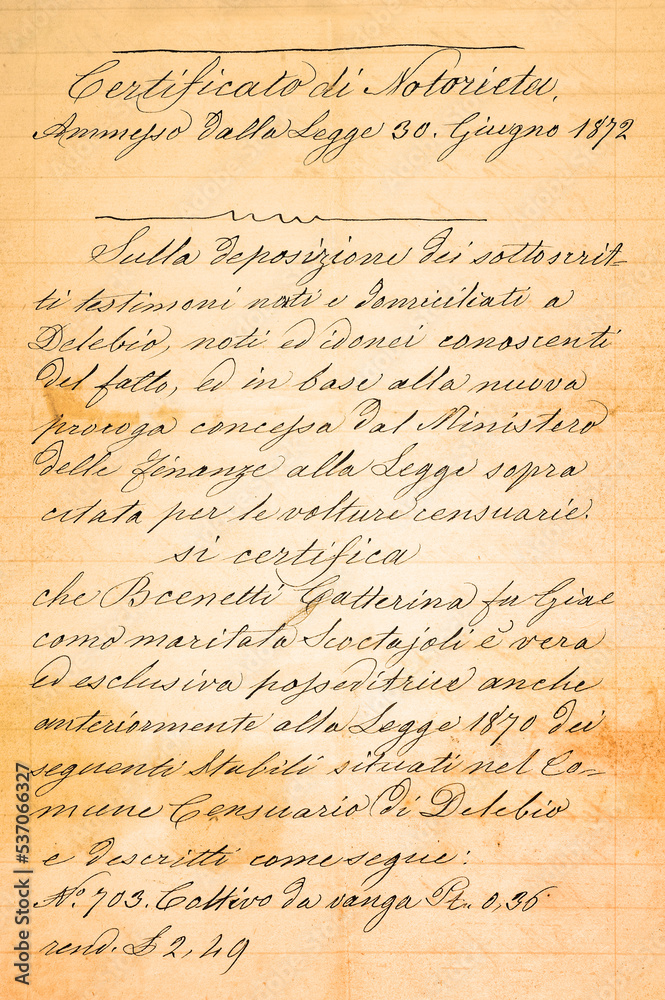 Certificato di Notorieta,
Ammesso dalla Legge 30. Giugno 1872
Sulla deposizione dei sottoscrit-
ti testimoni nati e domiciliati a
Delebio, noti ed idonei conoscenti
del fatto, ed in base alla nuova
proroga concessa dal Ministero
delle Finanze alla Legge sopra
citata per le volture censuarie.
si certifica
che Catterina fu Gia
como maritata è vera
ed esclusiva posseditrice anche
anteriormente alla Legge 1870 dei
seguenti Stabili situati nel Co-
mune Censuario di Delebio
e descritti come segue:
N.º 703. Coltivo da vanga Pt. 0,36
rend. £ 2,49
Adobe Stock | #537066327